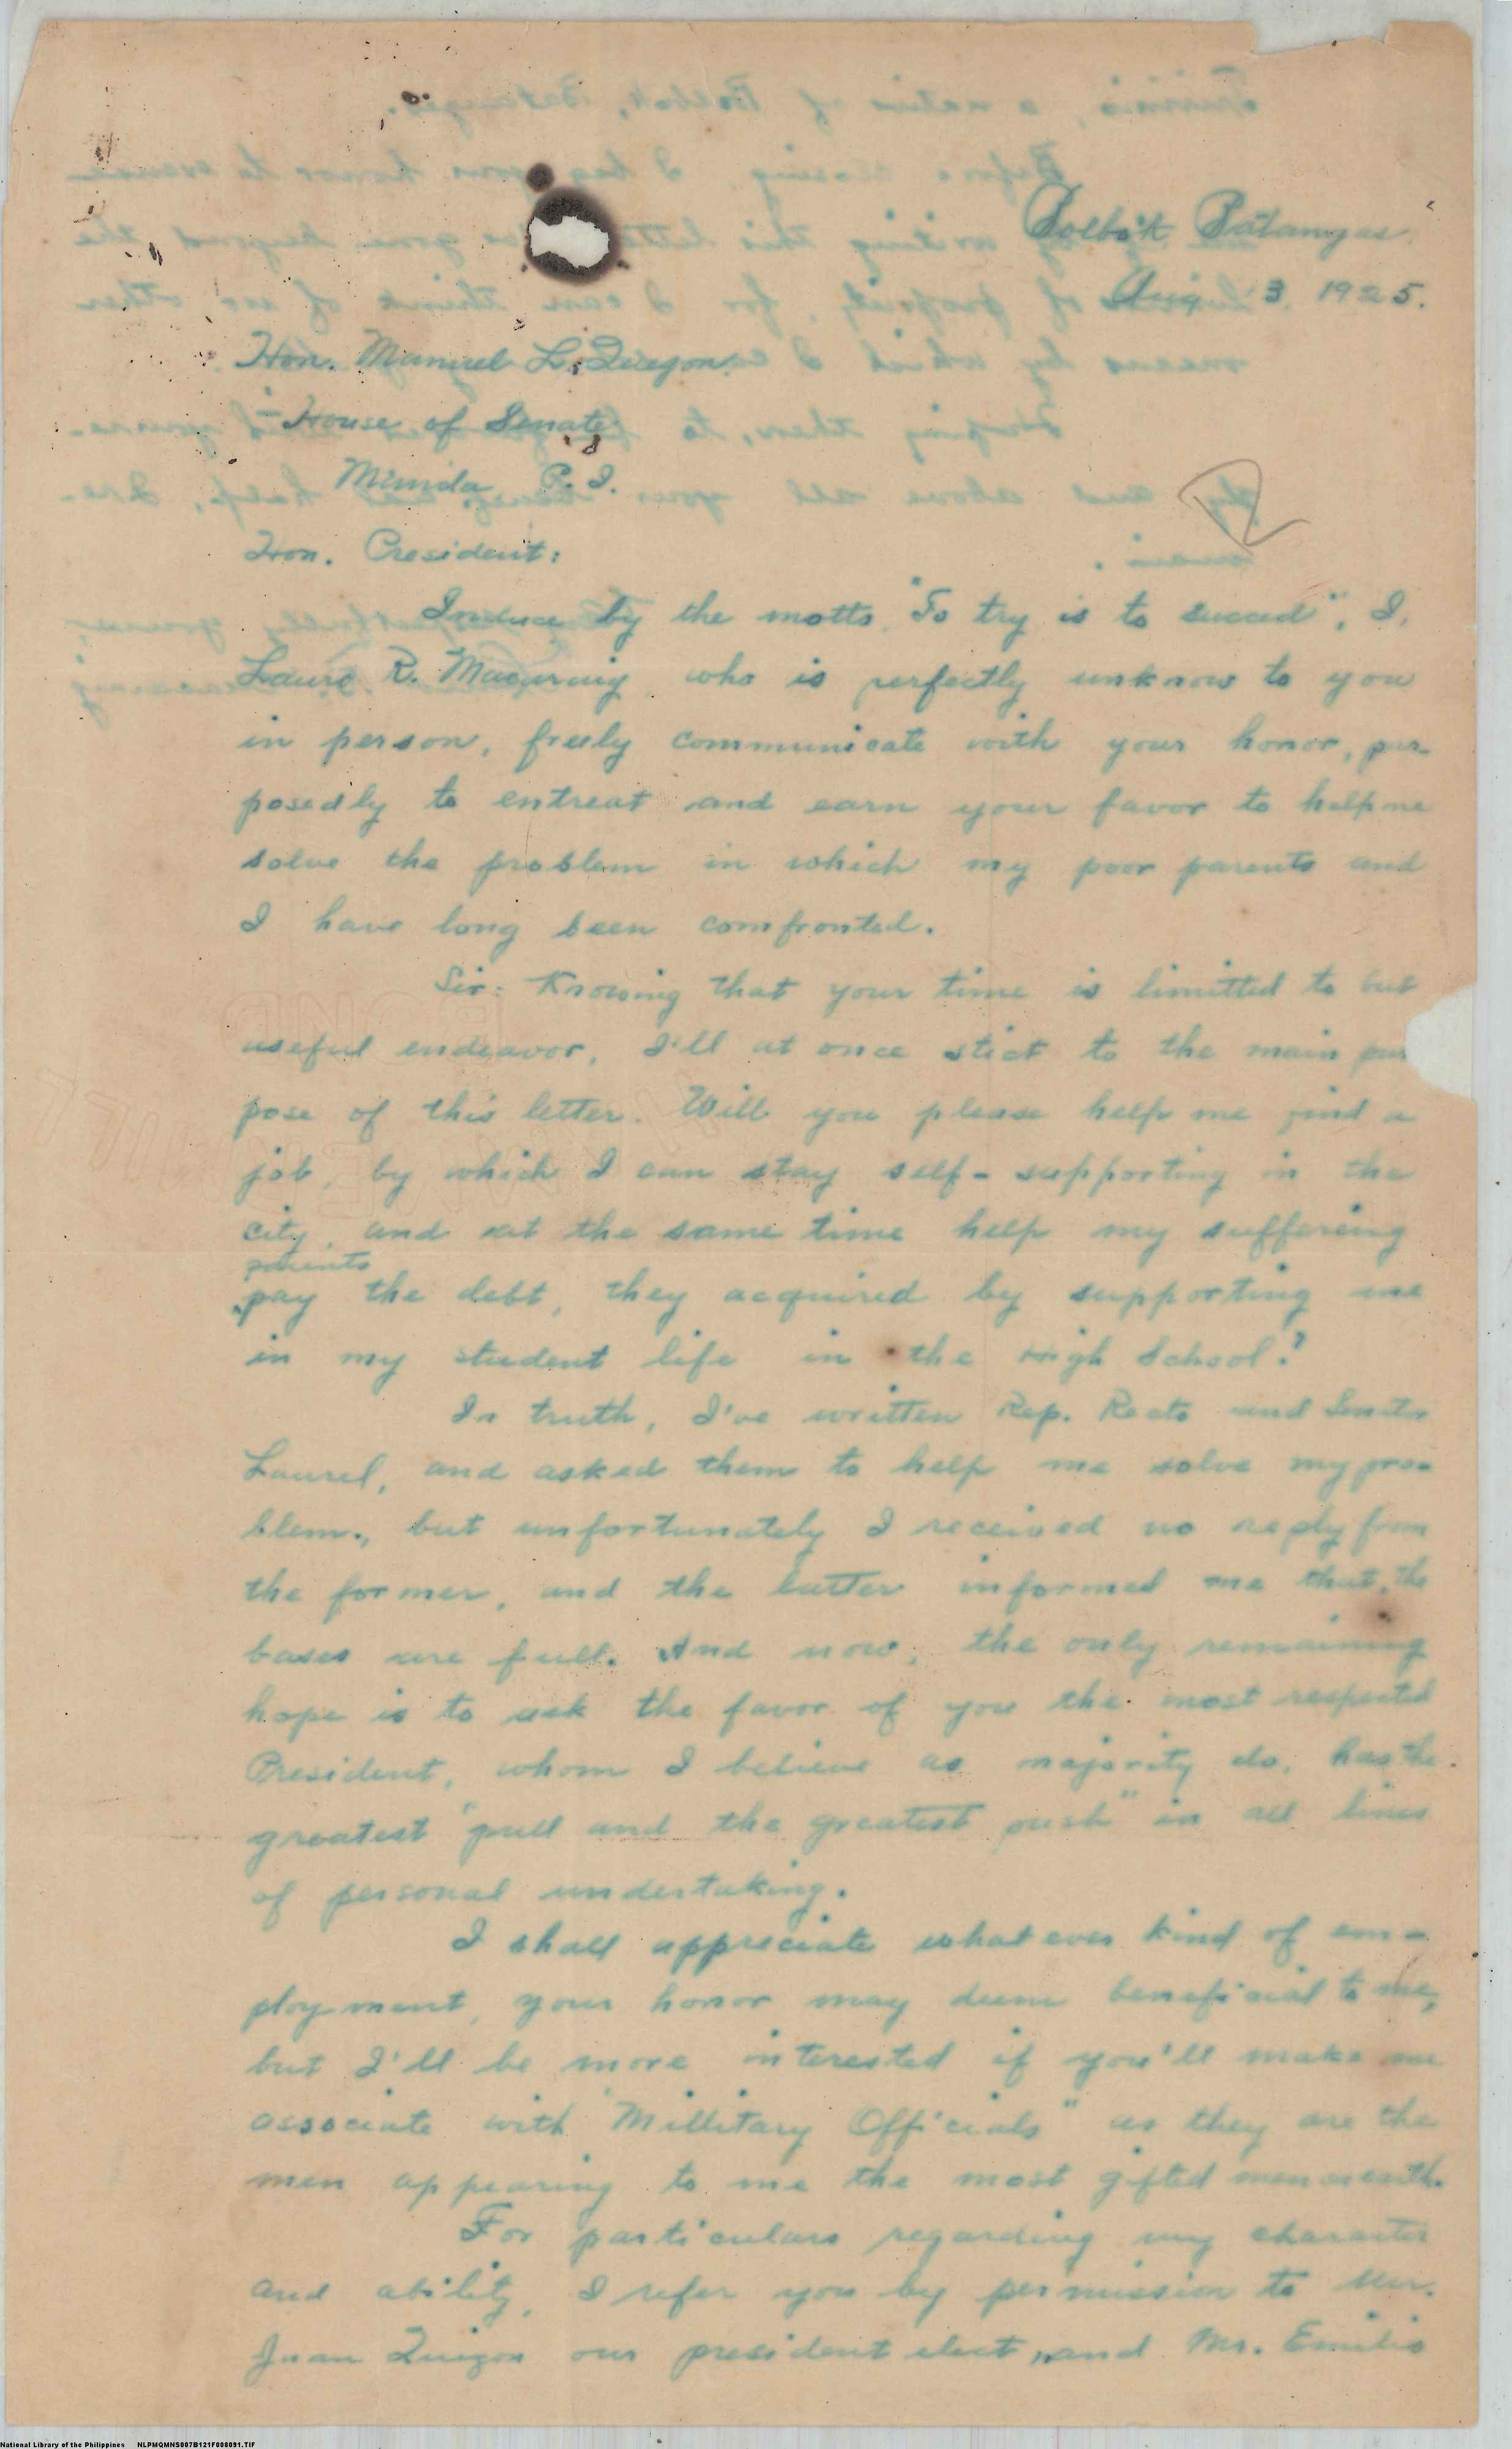 Bolbok Batangas
Aug 3 1925.
Hon. Manuel L. Quezon
House of Senate
Manila P. I.
Hon. President:
Induce by the motto "To try is to succed", I,
Lauro R. who is perfectly unknow to you
in person, freely communicate with your honor, pur-
posedly to entreat and earn your favor to help me
solve the problem in which my poor parents and
I have long been comfronted.
Sir: Knowing that your time is limitted to but
useful endeavor, I'll at once stick to the main pur
pose of this letter. Will you please help me find a
job, by which I can stay self-supporting in the
city, and at the same time help my suffering
parents
pay the debt, they acquired by supporting me
in my student life in the High School?
In truth, I've written Rep. Recto and Senator
Laurel, and asked them to help me solve my pro-
blem., but unfortunately I received no reply from
the former, and the latter informed me that, the
bases are full. And now, the only remaining
hope is to ask the favor of you the most respected
President, whom I believe as majority do, has the
greatest "pull and the greatest push" in all lines
of personal undertaking.
I shall appreciate what ever kind of em-
ployment, your honor may deem beneficial to me,
but I'll be more interested if you'll make me
associate with "Millitary Officials" as they are the
men appearing to me the most gifted men on earth.
For particulars regarding my character
and ability, I refer you by permission to Mr.
Juan Quizon our president elect, and Mr. Emilio
National Library of the Philippines NLPMQMNS007B121F008091.TIF